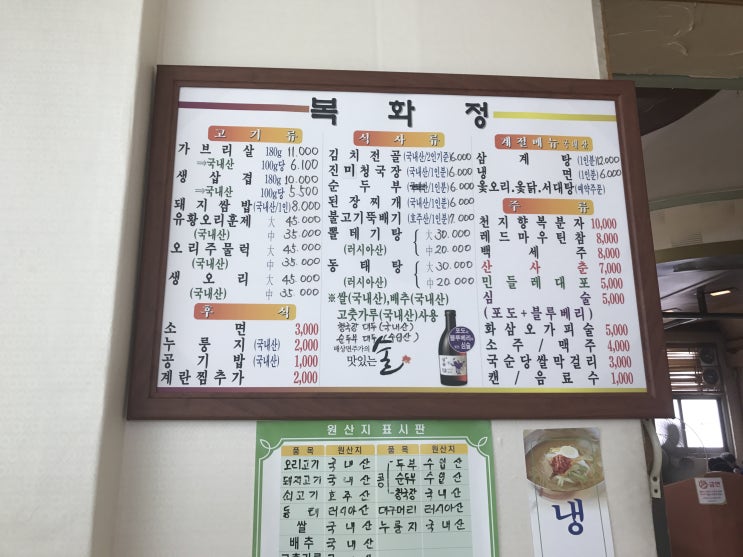 복 화 정
고 기 류
가브리살 180g 11,000
⇒국내산 100g당 6,100
생 삼 겹 180g 10,000
⇒국내산 100g당 5,500
돼지쌈밥 (국내산/1인) 8,000
유황오리훈제 大 45,000
(국내산) 中 35,000
오리주물럭 大 45,000
(국내산) 中 35,000
생 오 리 大 45,000
(국내산) 中 35,000
후 식
소 면 3,000
누 룽 지 (국내산) 2,000
공 기 밥 (국내산) 1,000
계란찜추가 2,000
식 사 류
김치전골 (국내산/2인기준) 6,000
진미청국장 (국내산/1인분) 6,000
순 두 부 (1인분) 6,000
된장찌개 (국내산/1인분) 6,000
불고기뚝배기 (호주산/1인분) 7,000
뽈테기탕 大 30,000
(러시아산) 中 20,000
동 태 탕 大 30,000
(러시아산) 中 20,000
※쌀(국내산),배추(국내산)
고춧가루(국내산)사용
청국장 대두 (국내산)
순두부 대두 (수입산)
배상면주가의
맛있는 술
포도+
블루베리
계절메뉴 국내산
삼 계 탕 (1인분) 12,000
냉 면 (1인분) 6,000
옻오리,옻닭,서대탕 (예약주문)
주 류
천지향복분자 10,000
레드마우틴참 8,000
백 세 주 8,000
산 사 춘 7,000
민들레대포 5,000
심 술 5,000
(포도+블루베리)
화삼오가피술 5,000
소 주 / 맥 주 4,000
국순당쌀막걸리 3,000
캔 / 음 료 수 1,000
원산지 표시판
품 목 원산지 품 목 원산지
오리고기 국내산 콩 두부 수입산
돼지고기 국내산 순두부 수입산
쇠고기 호주산 청국장 국내산
동태 러시아산 대구머리 러시아산
쌀 국내산 누룽지 국내산
배추 국내산
고춧가루 국내산
냉
금연